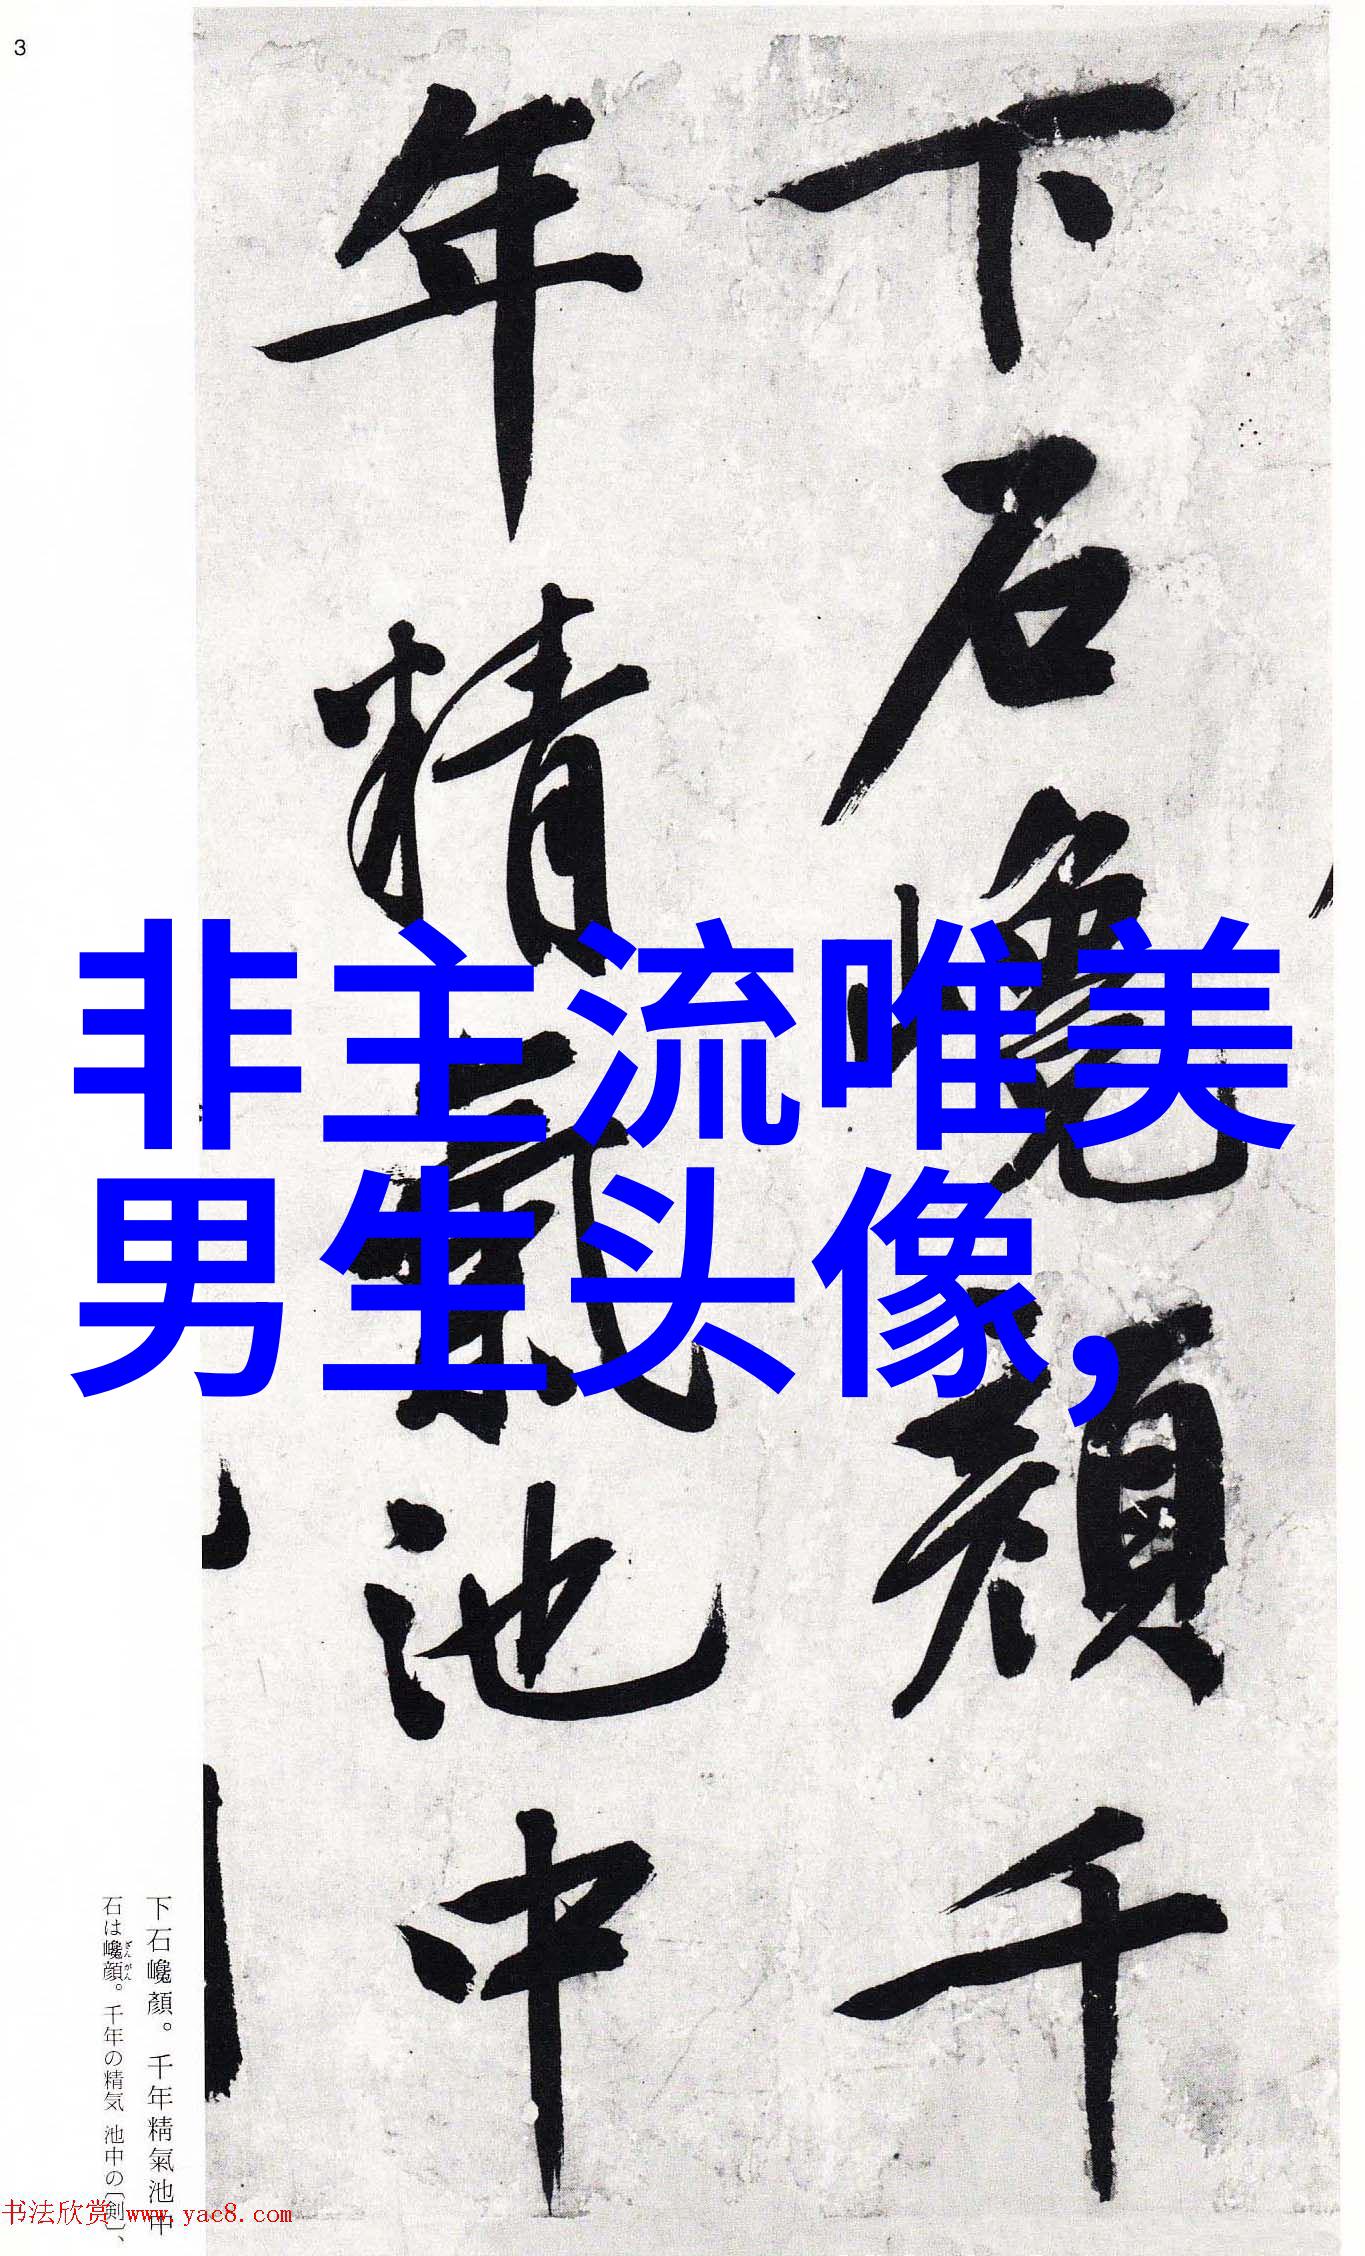 3
下石巉顏千
年精氣池中
非主流唯美
男生头像，
下石巉顏。千年精氣池中
石は巉顔。千年の精気 池中の〔剣〕、
ざんがん
书法欣赏 www.yac8.com